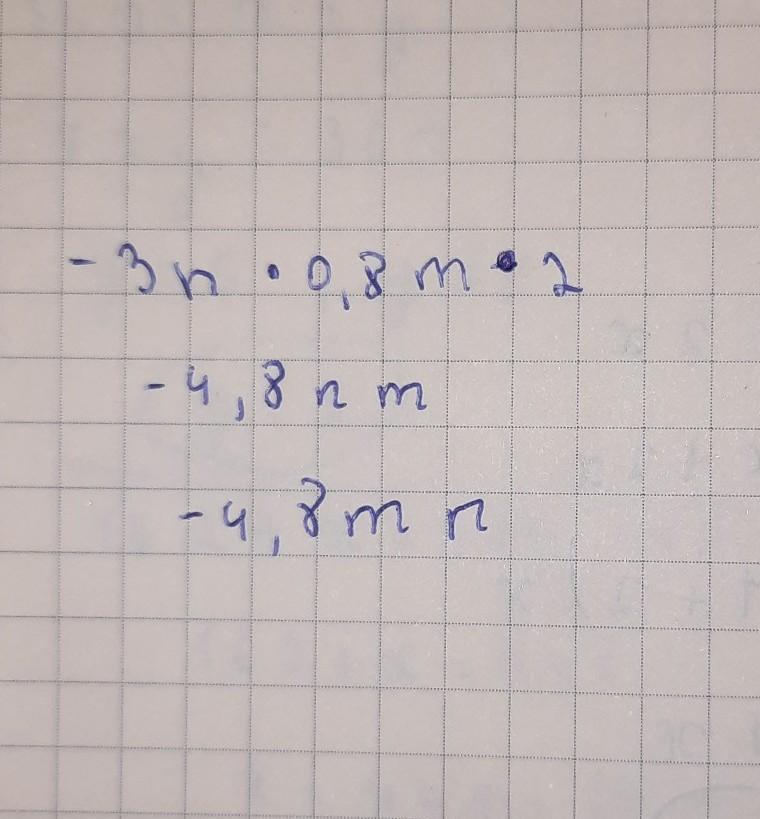 -3n · 0,8m · 2
-4,8nm
-4,8mn